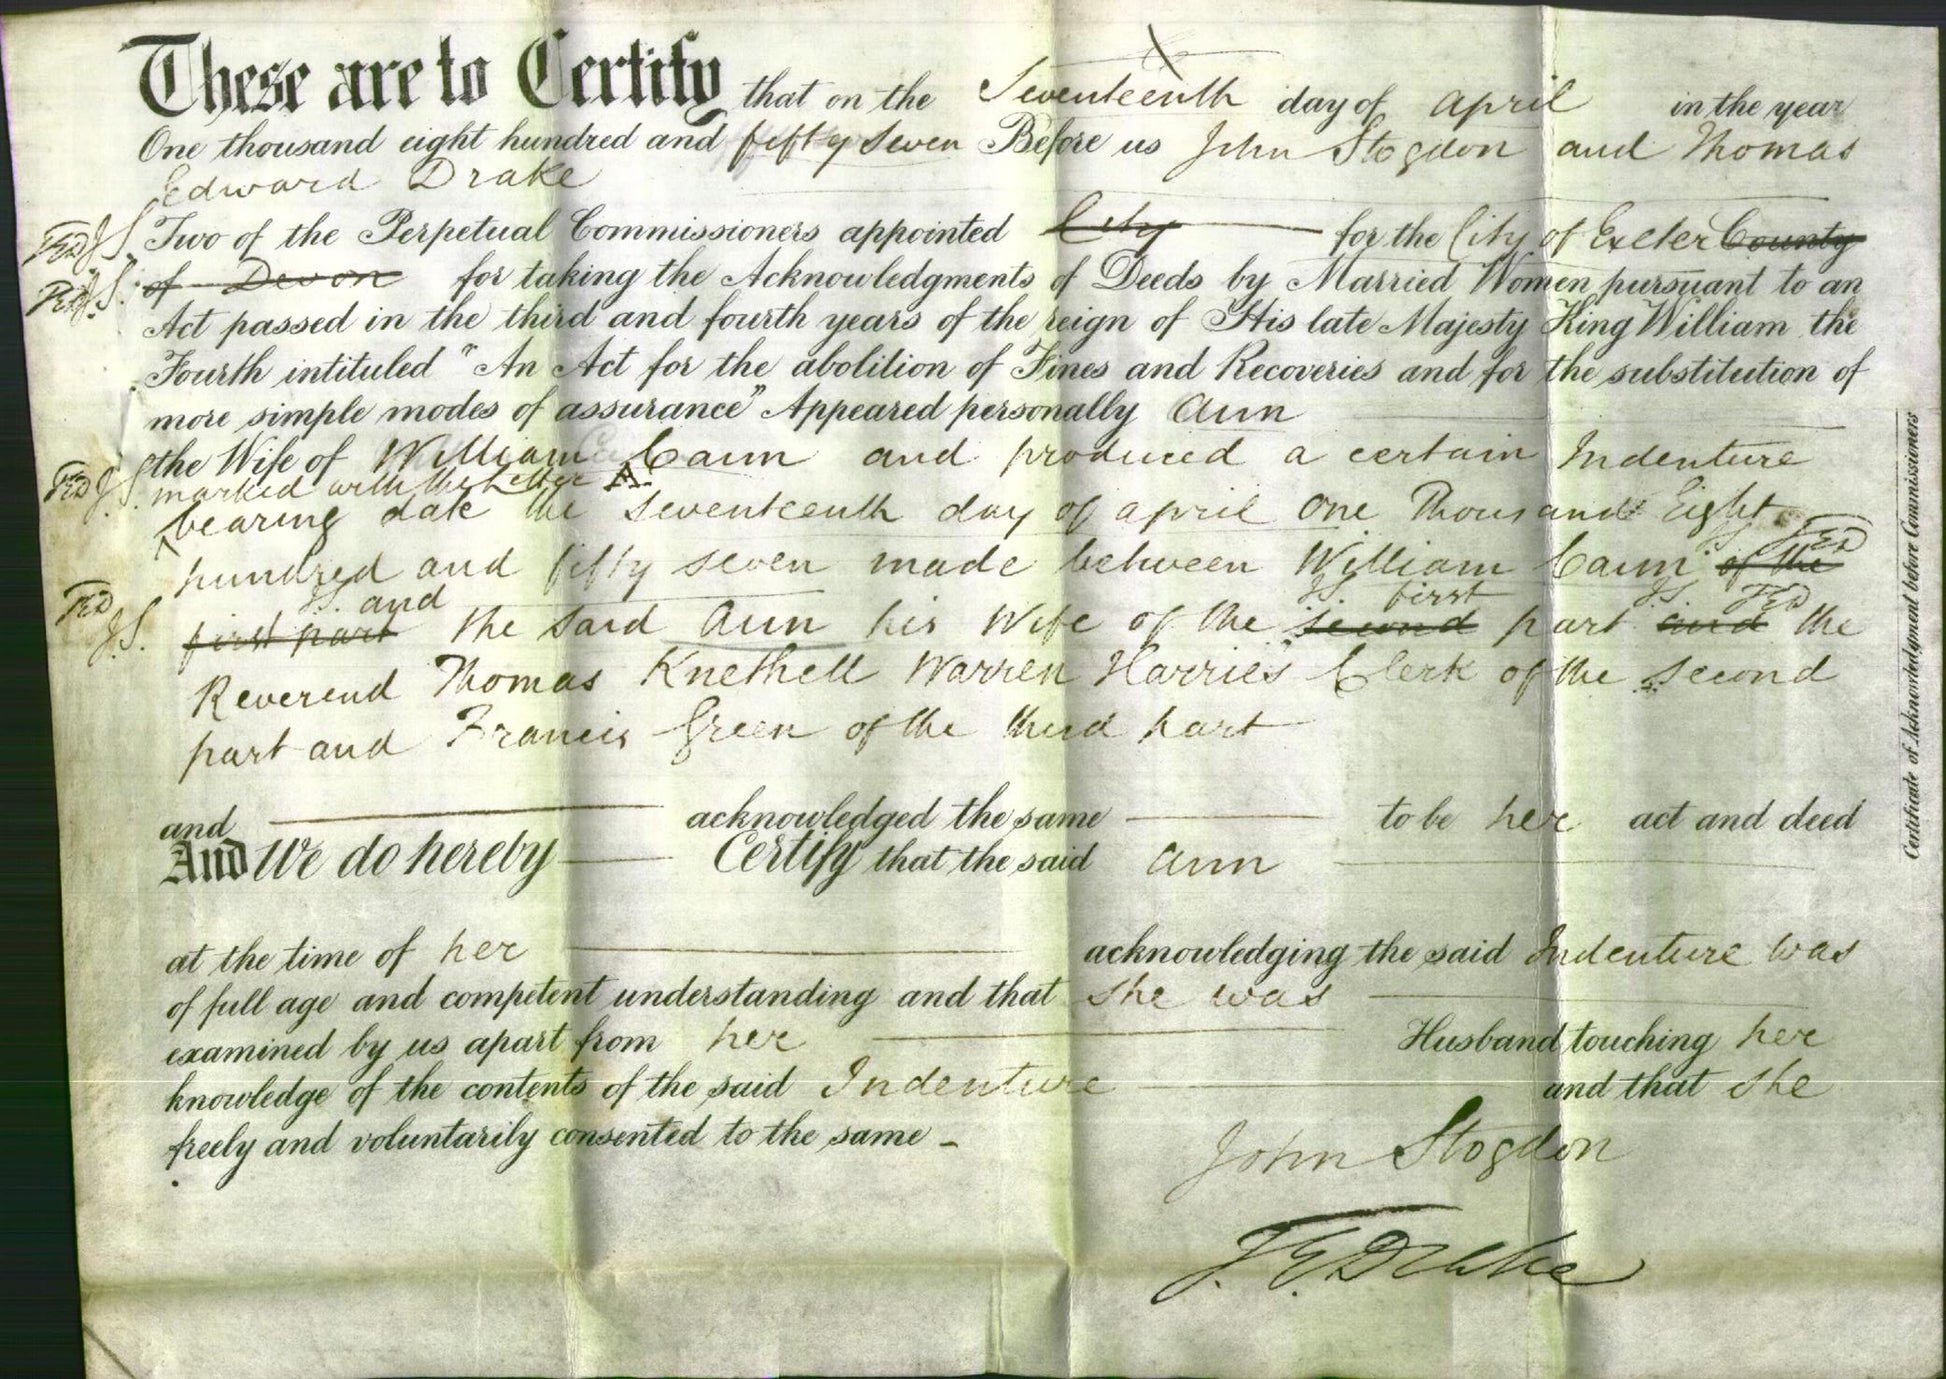 These are to Certify that on the Seventeenth day of april in the year
One thousand eight hundred and fifty seven Before us John Stogdon and Thomas
Edward Drake
TED JS Two of the Perpetual Commissioners appointed City for the City of Exeter County
TED JS of Devon for taking the Acknowledgments of Deeds by Married Women pursuant to an
Act passed in the third and fourth years of the reign of His late Majesty King William the
Fourth intituled "An Act for the abolition of Fines and Recoveries and for the substitution of
more simple modes of assurance" Appeared personally Ann
the Wife of William Cann and produced a certain Indenture
TED JS marked with the Letter A
bearing date the Seventeenth day of april One Thousand Eight
hundred and fifty seven made between William Cann of the
JS TED
JS and JS first JS TED
TED JS first part the said Ann his Wife of the second part and the
Reverend Thomas Knethell Warren Harries Clerk of the second
part and Francis Green of the third part
and acknowledged the same to be her act and deed
And We do hereby Certify that the said Ann
at the time of her acknowledging the said Indenture was
of full age and competent understanding and that she was
examined by us apart from her Husband touching her
knowledge of the contents of the said Indenture and that she
freely and voluntarily consented to the same
John Stogdon
T. E. Drake
Certificate of Acknowledgment before Commissioners